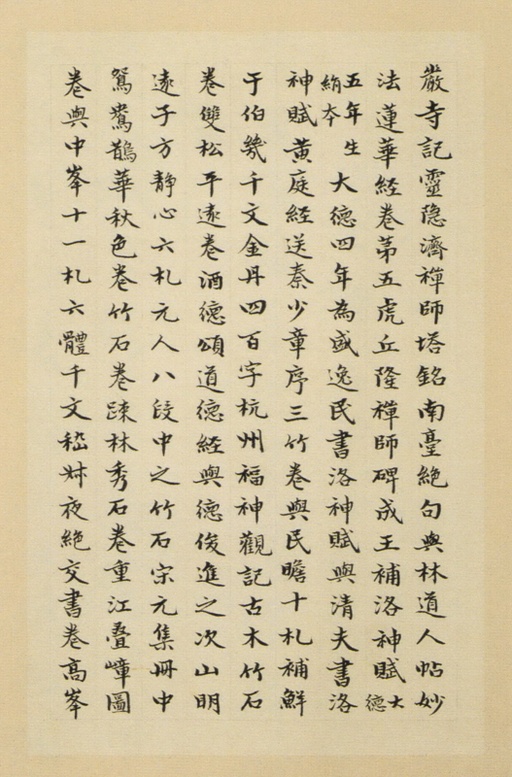 嚴寺記靈隐濟禪師塔銘南臺絕句與林道人帖妙
法蓮華經卷第五虎丘隆禪師碑成王補洛神賦大德
五年生絹本大德四年為盛逸民書洛神賦與清夫書洛
神賦黄庭經送秦少章序三竹卷與民瞻十札補鮮
于伯幾千文金丹四百字杭州福神觀記古木竹石
卷雙松平遠卷酒德頌道德經與德俊進之次山明
遠子方靜心六札元人八段中之竹石宋元集冊中
鴛鴦鵲華秋色卷竹石卷疎林秀石卷重江疊嶂圖
卷與中峯十一札六體千文嵇叔夜絕交書卷高峯